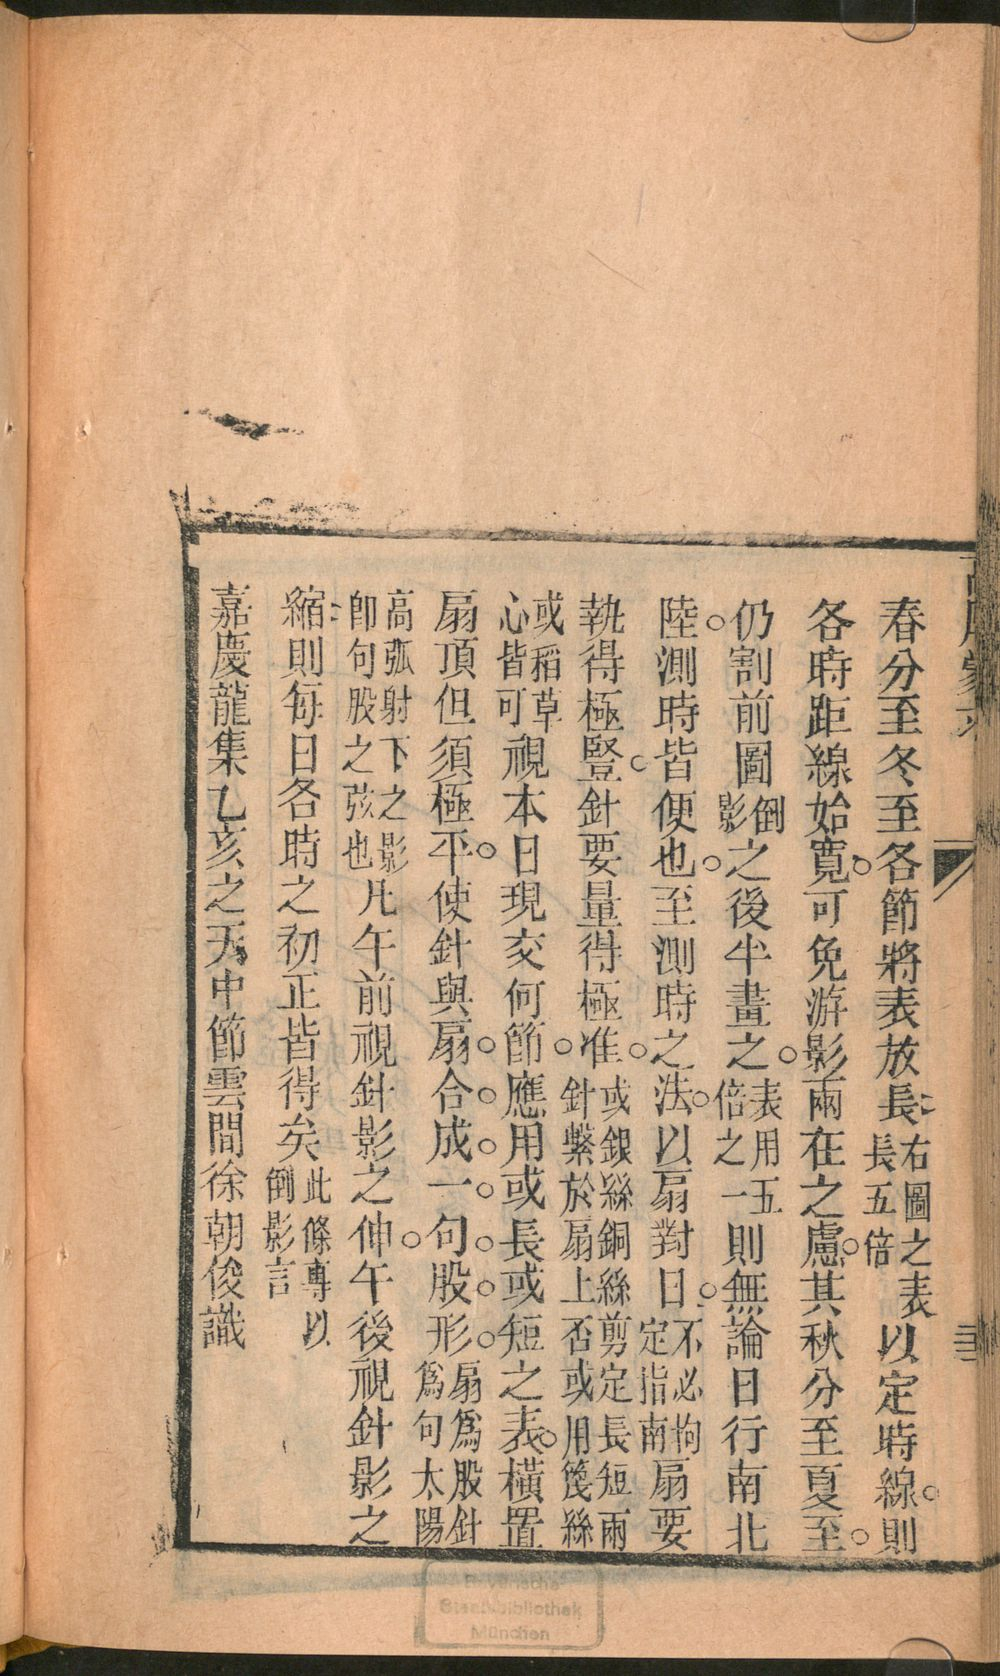 春分至冬至各節將表放長右圖之表長五倍以定時線則
各時距線始寬可免游影兩在之慮其秋分至夏至
仍割前圖倒影之後半畫之表用五倍之一則無論日行南北
陸測時皆便也至測時之法以扇對日不必拘定指南扇要
執得極豎針要量得極准或銀絲銅絲剪定長短兩針繫於扇上否或用篾絲
或稻草心皆可視本日現交何節應用或長或短之表橫置
扇頂但須極平使針與扇合成一句股形扇為股針為句太陽
高弧射下之影卽句股之弦也凡午前視針影之伸午後視針影之
縮則每日各時之初正皆得矣此條專以倒影言
嘉慶龍集乙亥之天中節雲間徐朝俊識
Bayerische
Staatsbibliothek
München